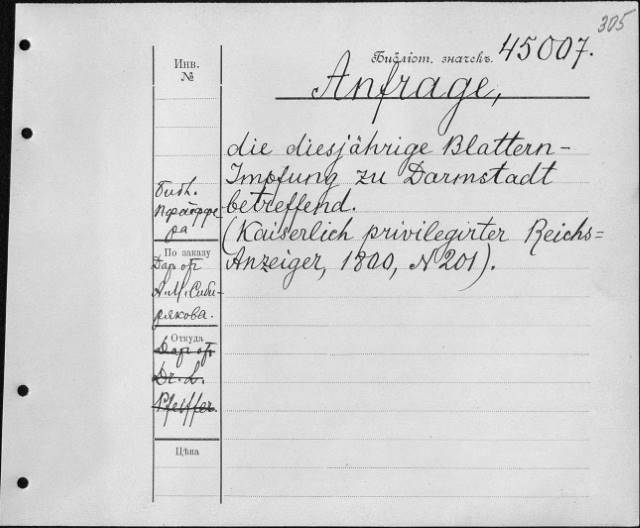 305
Библіот. значекъ. 45007.
Инв.
№
Anfrage,
die diesjährige Blattern-
Impfung zu Darmstadt
betreffend.
(Kaiserlich privilegirter Reichs=
Anzeiger, 1800, N 201).
библ.
Пфейффе
ра
По заказу
Дар от
А. М. Сиби-
рякова.
Откуда
Дар от
Dr. L.
Pfeiffer.
Цѣна